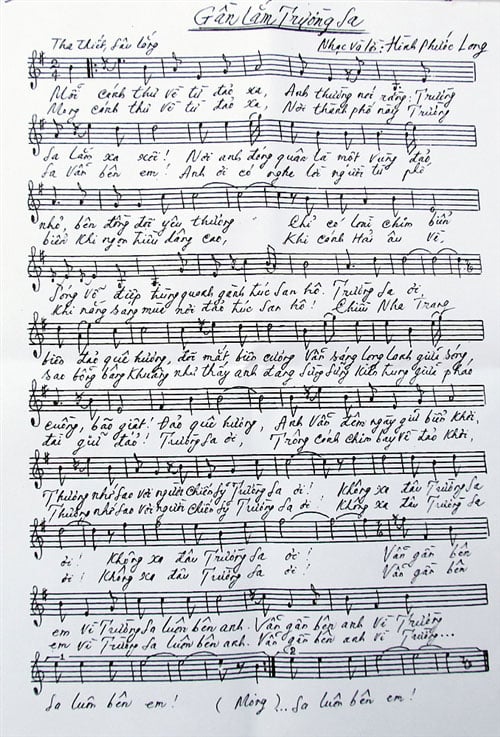 Gần Lắm Trường Sa
Tha thiết, Sâu lắng
Nhạc và lời: Hình Phước Long
Mỗi cánh thư về từ đảo xa, Anh thường nói rằng: Trường
Mong cánh thư về từ đảo xa, Nơi thành phố này Trường
Sa lắm xa xôi! Nơi anh đóng quân là một vùng đảo
Sa vẫn bên em! Anh ơi có nghe lời người từ phố
nhỏ, bên đồng đội yêu thương Chỉ có loài chim biển
biển khi ngọn triều dâng cao, Khi cánh Hải âu về,
Sóng vỗ điệp trùng quanh gành trúc San hô. Trường Sa ơi,
Khi nắng sang mùa nơi đảo trúc San hô! Chiều Nha Trang
biển đảo quê hương, đôi mắt biên cương vẫn sáng long lanh giữa sóng,
sao bỗng bâng khuâng như thấy anh đang sừng sững hiên ngang giữa pháo
cuồng, bão giật! Đảo quê hương, Anh vẫn đêm ngày giữ biển khơi,
đài giữ đảo! Trường Sa ơi, Trông cánh chim bay về đảo khơi,
Thương nhớ sao với người chiến sỹ Trường Sa ơi! Không xa đâu Trường Sa
Thương nhớ sao với người chiến sỹ Trường Sa ơi! Không xa đâu Trường Sa
ơi! Không xa đâu Trường Sa ơi! Vẫn gần bên
ơi! Không xa đâu Trường Sa ơi! Vẫn gần bên
em vì Trường Sa luôn bên anh. Vẫn gần bên anh vì Trường
em vì Trường Sa luôn bên anh. Vẫn gần bên anh vì Trường...
1 2
Sa luôn bên em! (Mong)... Sa luôn bên em!